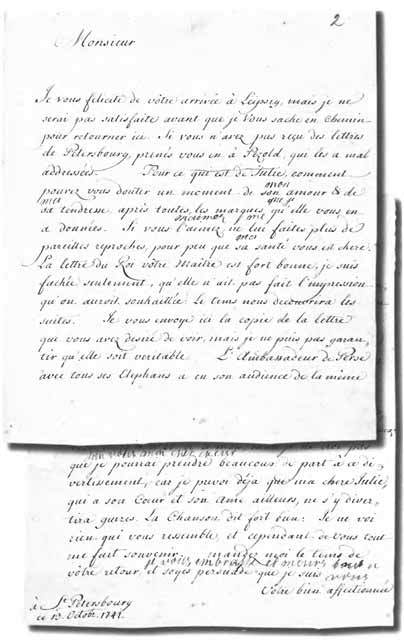 2
Monsieur
Je vous felicite de vôtre arrivée à Leipzig, mais je ne
serai pas satisfaite avant que je Vous sache en Chemin
pour retourner ici. Si vous n'avez pas reçu des lettres
de Petersbourg, prenés vous en à Pezold, qui les a mal
addressées. Pour ce que est de Julie, comment
mon
pouvez vous douter un moment de son amour & de
ma que je
sa tendresse après toutes les marques qu'elle vous en
encore moi
a données. Si vous l'aimez ne lui faites plus de
moi
pareilles reproches, pour peu que sa santé vous est chere.
La lettre du Roi vôtre Maitre est fort bonne, je suis
fachée seulement, qu'elle n'ait pas fait l'impression
qu'on auroit souhaittée. Le tems nous decouvrira les
suites. Je vous envoye ici la copie de la lettre
que vous avez desiré de voir, mais je ne puis pas garan-
tir qu'elle soit veritable. L'Ambassadeur de Perse
avec tous ses Elephans a eu son audience de la même
que je pourrai prendre beaucoup de part à ce di-
vertissement, car je prevoi déja que ma chere Julie,
qui a son Cœur et son Ame ailleurs, ne s'y diver-
tira guéres. La Chanson dit fort bien: Je ne voi
rien qui vous ressemble, et cependant de vous tout
me fait souvenir. mandez moi le tems de
je vous embrasse et meurs
vôtre retour, et soyes persuadé que je suis
vous
Votre bien affectionnée
à St. Petersbourg
ce 13. Octobr. 1741.